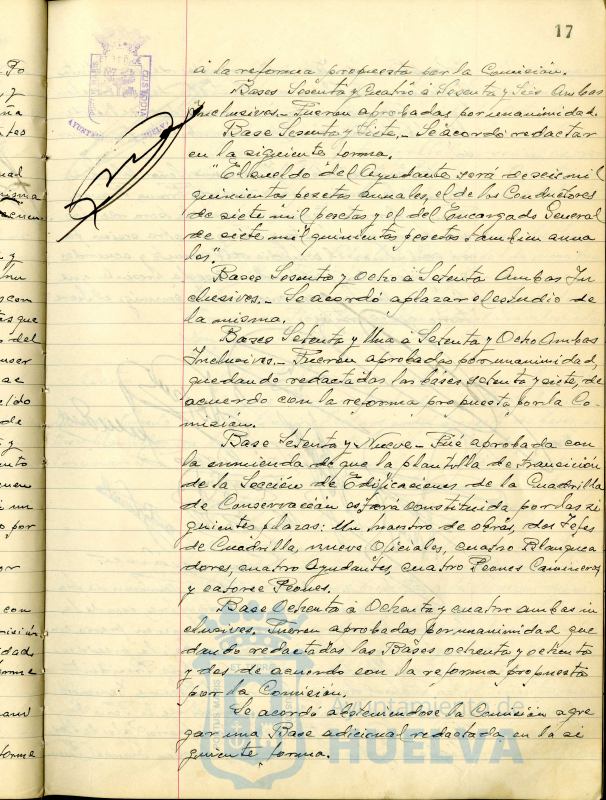 17
á la reforma propuesta por la Comisión.
Bases Sesenta y Cuatro á Sesenta y Seis Ambas
Inclusives.- Fueron aprobadas por unanimidad.
Base Sesenta y Siete.- Se acordó redactar
en la siguiente forma.
"El sueldo del Ayudante será de seis mil
quinientas pesetas anuales, el de los Conductores
de siete mil pesetas y el del Encargado General
de siete mil quinientas pesetas tambien anua
les."
Bases Sesenta y Ocho á Setenta Ambas In
clusives.- Se acordó aplazar el estudio de
la misma.
Bases Setenta y Una á Setenta y Ocho Ambas
Inclusives.- Fueron aprobadas por unanimidad,
quedando redactadas las bases setenta y siete, de
acuerdo con la reforma propuesta por la Co-
misión.
Base Setenta y Nueve- Fué aprobada con
la enmienda de que la plantilla de transición
de la Sección de Edificaciones de la Cuadrilla
de Conservación estará constituida por las si
guientes plazas: Un maestro de obras, dos Jefes
de Cuadrilla, nueve Oficiales, cuatro Blanquea
dores, cuatro Ayudantes, cuatro Peones Camineros
y catorce Peones.
Base Ochenta á Ochenta y cuatro ambas in
clusives. Fueron aprobadas por unanimidad que
dando redactadas las Bases ochenta y ochenta
y dos de acuerdo con la reforma propuesta
por la Comisión.
Se acordó absteniendose la Comisión agre
gar una Base adicional redactada en la si
guiente forma.
Ayuntamiento de
HUELVA